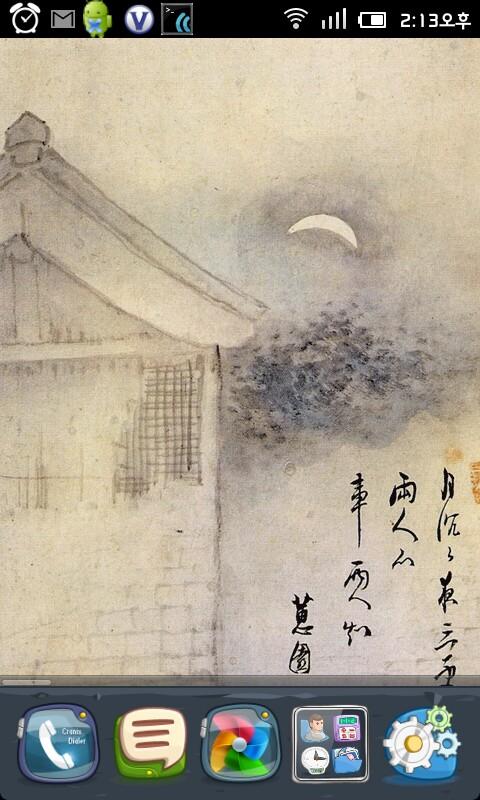 2:13오후
V
月沉〻夜三更
兩人心
事兩人知
蕙園
Dialer